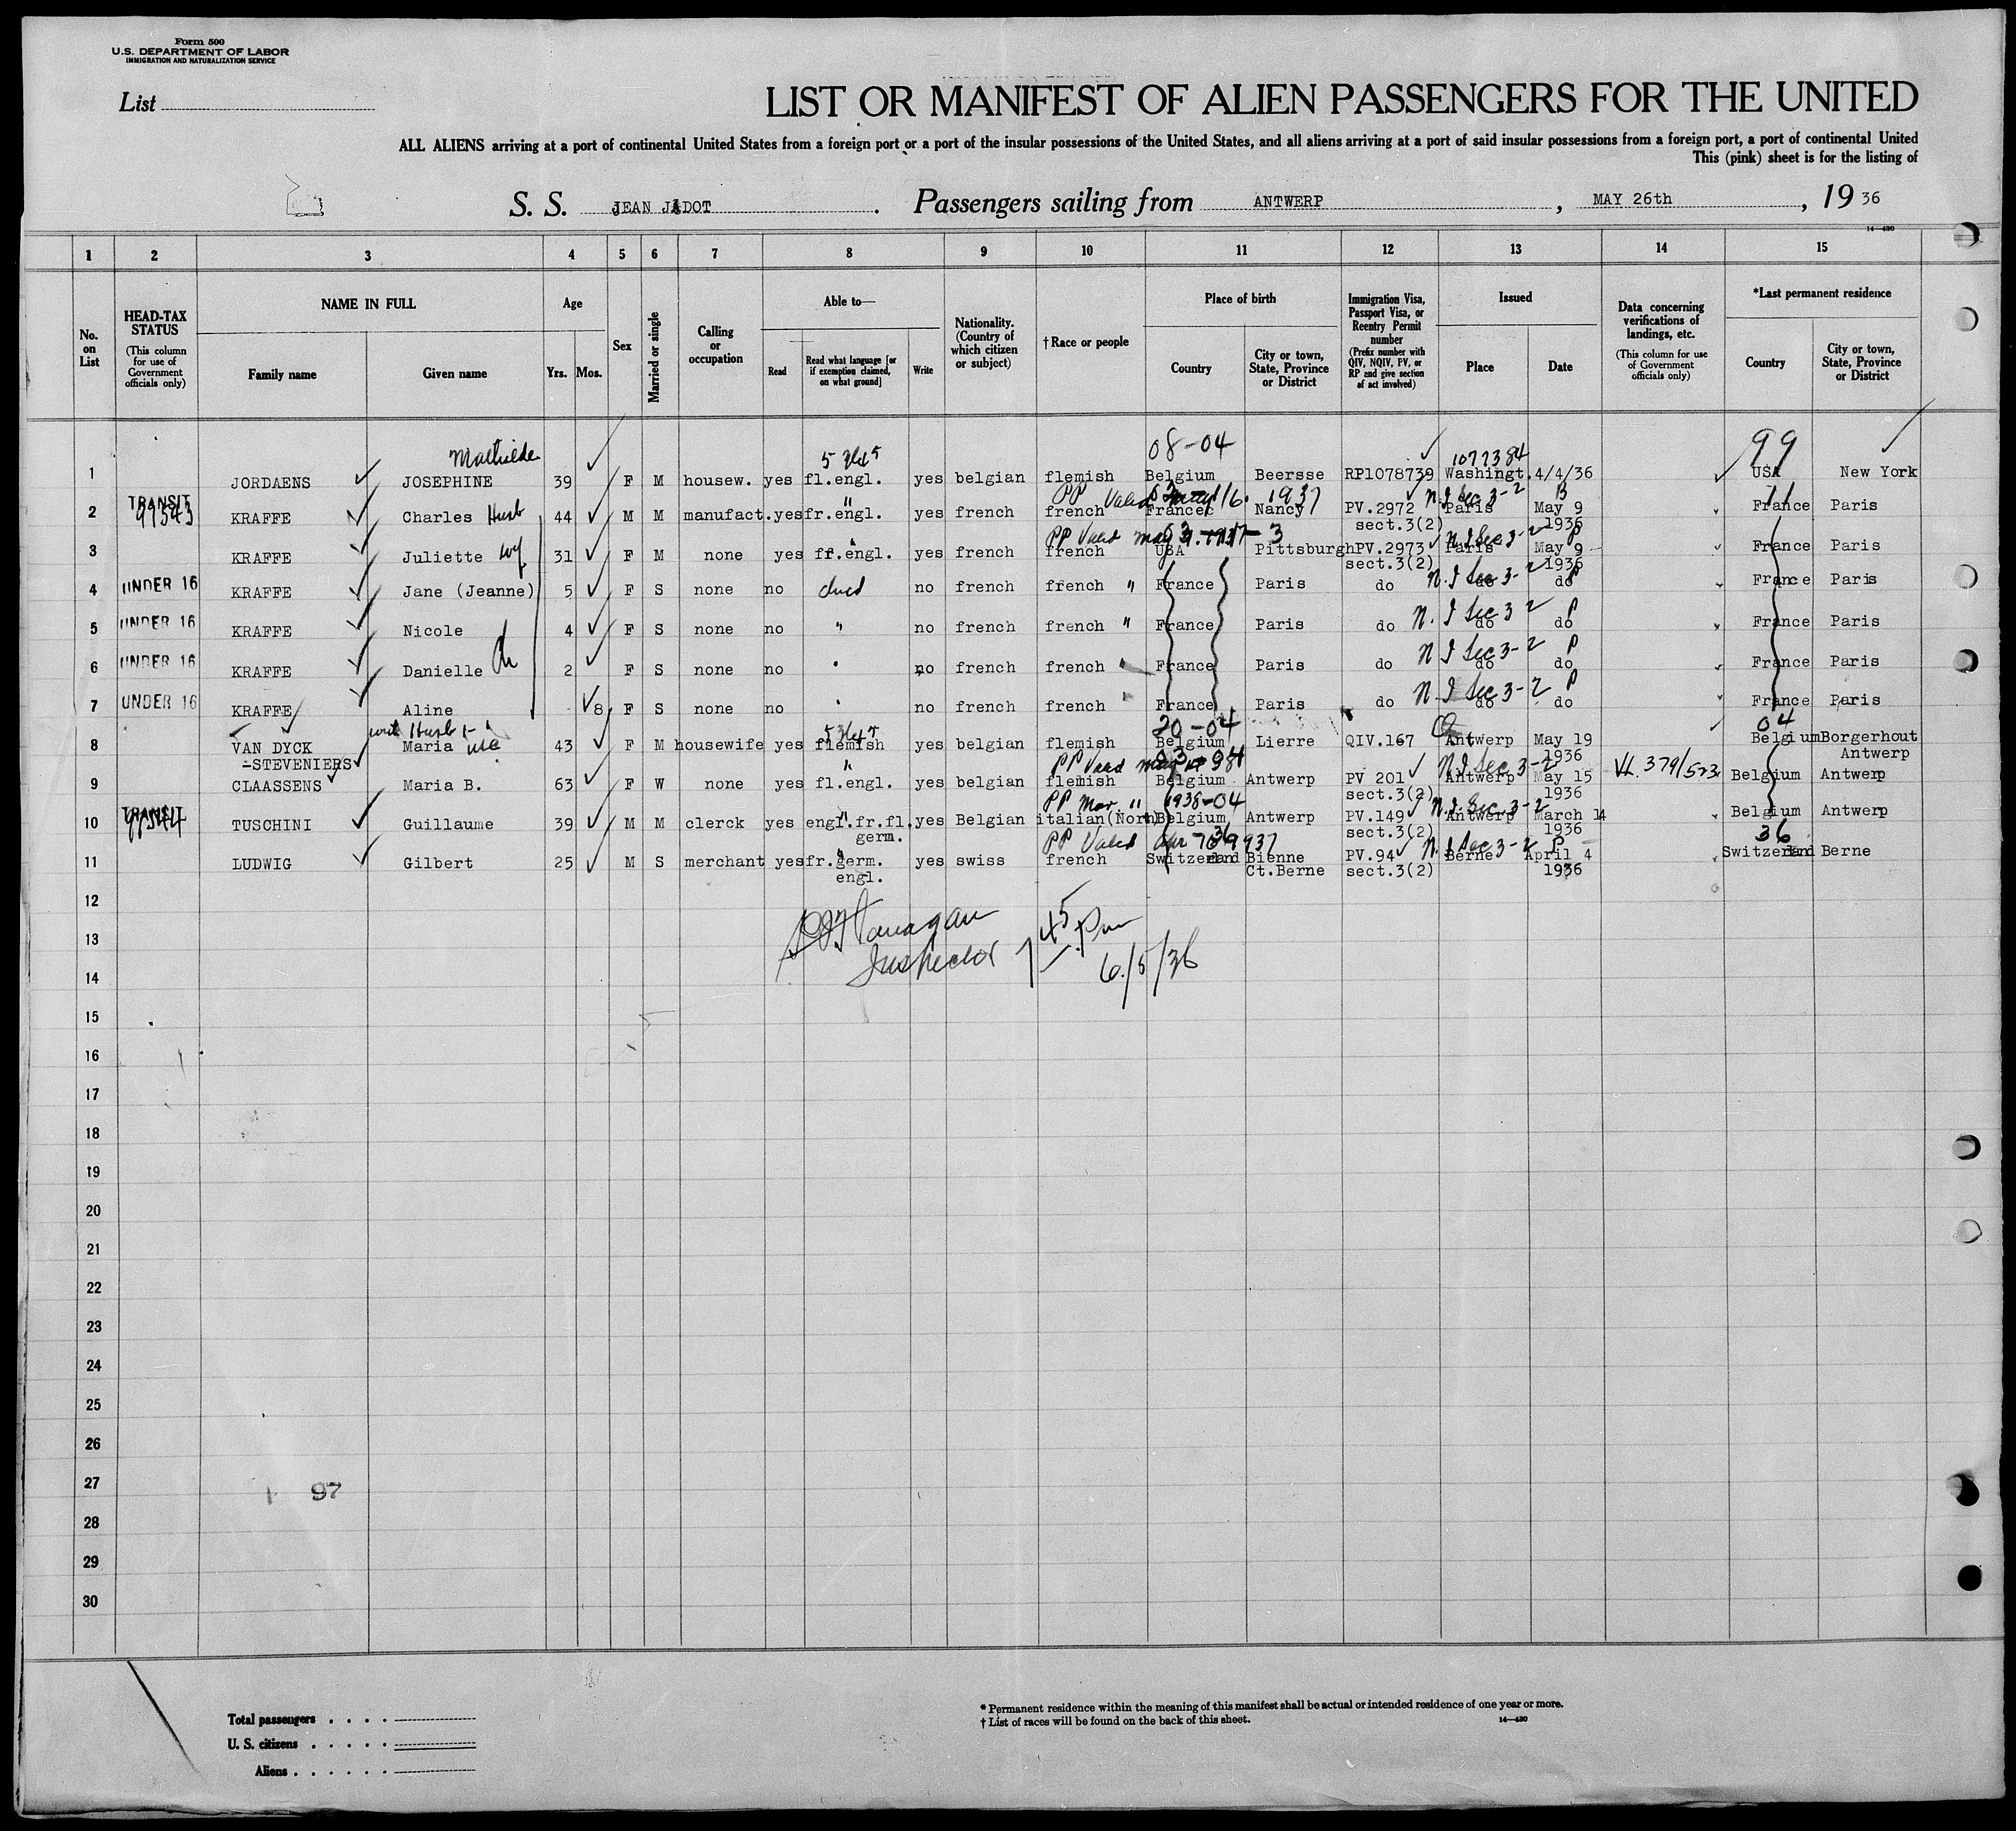 Form 500
U.S. DEPARTMENT OF LABOR
IMMIGRATION AND NATURALIZATION SERVICE
List
LIST OR MANIFEST OF ALIEN PASSENGERS FOR THE UNITED
ALL ALIENS arriving at a port of continental United States from a foreign port or a port of the insular possessions of the United States, and all aliens arriving at a port of said insular possessions from a foreign port, a port of continental United
This (pink) sheet is for the listing of
S. S. JEAN JADOT. Passengers sailing from ANTWERP, MAY 26th, 19 36
14—430
1 2 3 4 5 6 7 8 9 10 11 12 13 14 15
No. on List
HEAD-TAX STATUS
(This column for use of Government officials only)
NAME IN FULL
Family name Given name
Age
Yrs. Mos.
Sex
Married or single
Calling or occupation
Able to—
Read
Read what language [or if exemption claimed, on what ground]
Write
Nationality. (Country of which citizen or subject)
†Race or people
Place of birth
Country
City or town, State, Province or District
Immigration Visa, Passport Visa, or Reentry Permit number
(Prefix number with QIV, NQIV, PV, or RP and give section of act involved)
Issued
Place Date
Data concerning verifications of landings, etc.
(This column for use of Government officials only)
*Last permanent residence
Country
City or town, State, Province or District
Mathilde 08-04 1077384 99
1 JORDAENS JOSEPHINE 39 F M housew. yes fl.engl. yes belgian flemish Belgium Beersse RP1078739 Washingt. 4/4/36 USA New York
TRANSIT 97343 PP Valid 1937 N.I Sec 3-2
2 KRAFFE Charles Husb 44 M M manufact. yes fr.engl. yes french french France Nancy PV.2972 Paris May 9 France Paris
sect.3(2) 1936
PP Valid N.I Sec 3-2 P
3 KRAFFE Juliette wf. 31 F M none yes fr.engl. yes french french USA Pittsburgh PV.2973 Paris May 9 France Paris
sect.3(2) 1936
4 UNDER 16 KRAFFE Jane (Jeanne) 5 F S none no no french french " France Paris do N.I Sec 3-2 do do P France Paris
5 UNDER 16 KRAFFE Nicole 4 F S none no " no french french " France Paris do N.I Sec 3-2 do do P France Paris
6 UNDER 16 KRAFFE Danielle 2 F S none no " no french french " France Paris do N I Sec 3-2 do do P France Paris
7 UNDER 16 KRAFFE Aline 8 F S none no " no french french " France Paris do N.I Sec 3-2 do do P France Paris
20-04 04
8 VAN DYCK Maria 43 F M housewife yes flemish yes belgian flemish Belgium Lierre QIV.167 Antwerp May 19 Belgium Borgerhout
-STEVENIERS 1936 Antwerp
PP Valid N I Sec 3-2 VL. 379/523
9 CLAASSENS Maria B. 63 F W none yes fl.engl. yes belgian flemish Belgium Antwerp PV 201 Antwerp May 15 Belgium Antwerp
sect.3(2) 1936
TRANSIT PP Mar. " 1938-04 N.I. Sec 3-2
10 TUSCHINI Guillaume 39 M M clerck yes engl.fr.fl. yes Belgian italian(North) Belgium Antwerp PV.149 Antwerp March 14 Belgium Antwerp
germ. sect.3(2) 1936
PP Valid Apr 7 1937 N.I Sec 3-2 P 36
11 LUDWIG Gilbert 25 M S merchant yes fr.germ. yes swiss french Switzerland Bienne PV.94 Berne April 4 Switzerland Berne
engl. Ct.Berne sect.3(2) 1936
12
13 Flanagan 7 45 Pm
14 Inspector 6/5/36
15
16
17
18
19
20
21
22
23
24
25
26
27 97
28
29
30
Total passengers
U. S. citizens
Aliens
* Permanent residence within the meaning of this manifest shall be actual or intended residence of one year or more.
† List of races will be found on the back of this sheet. 14—430